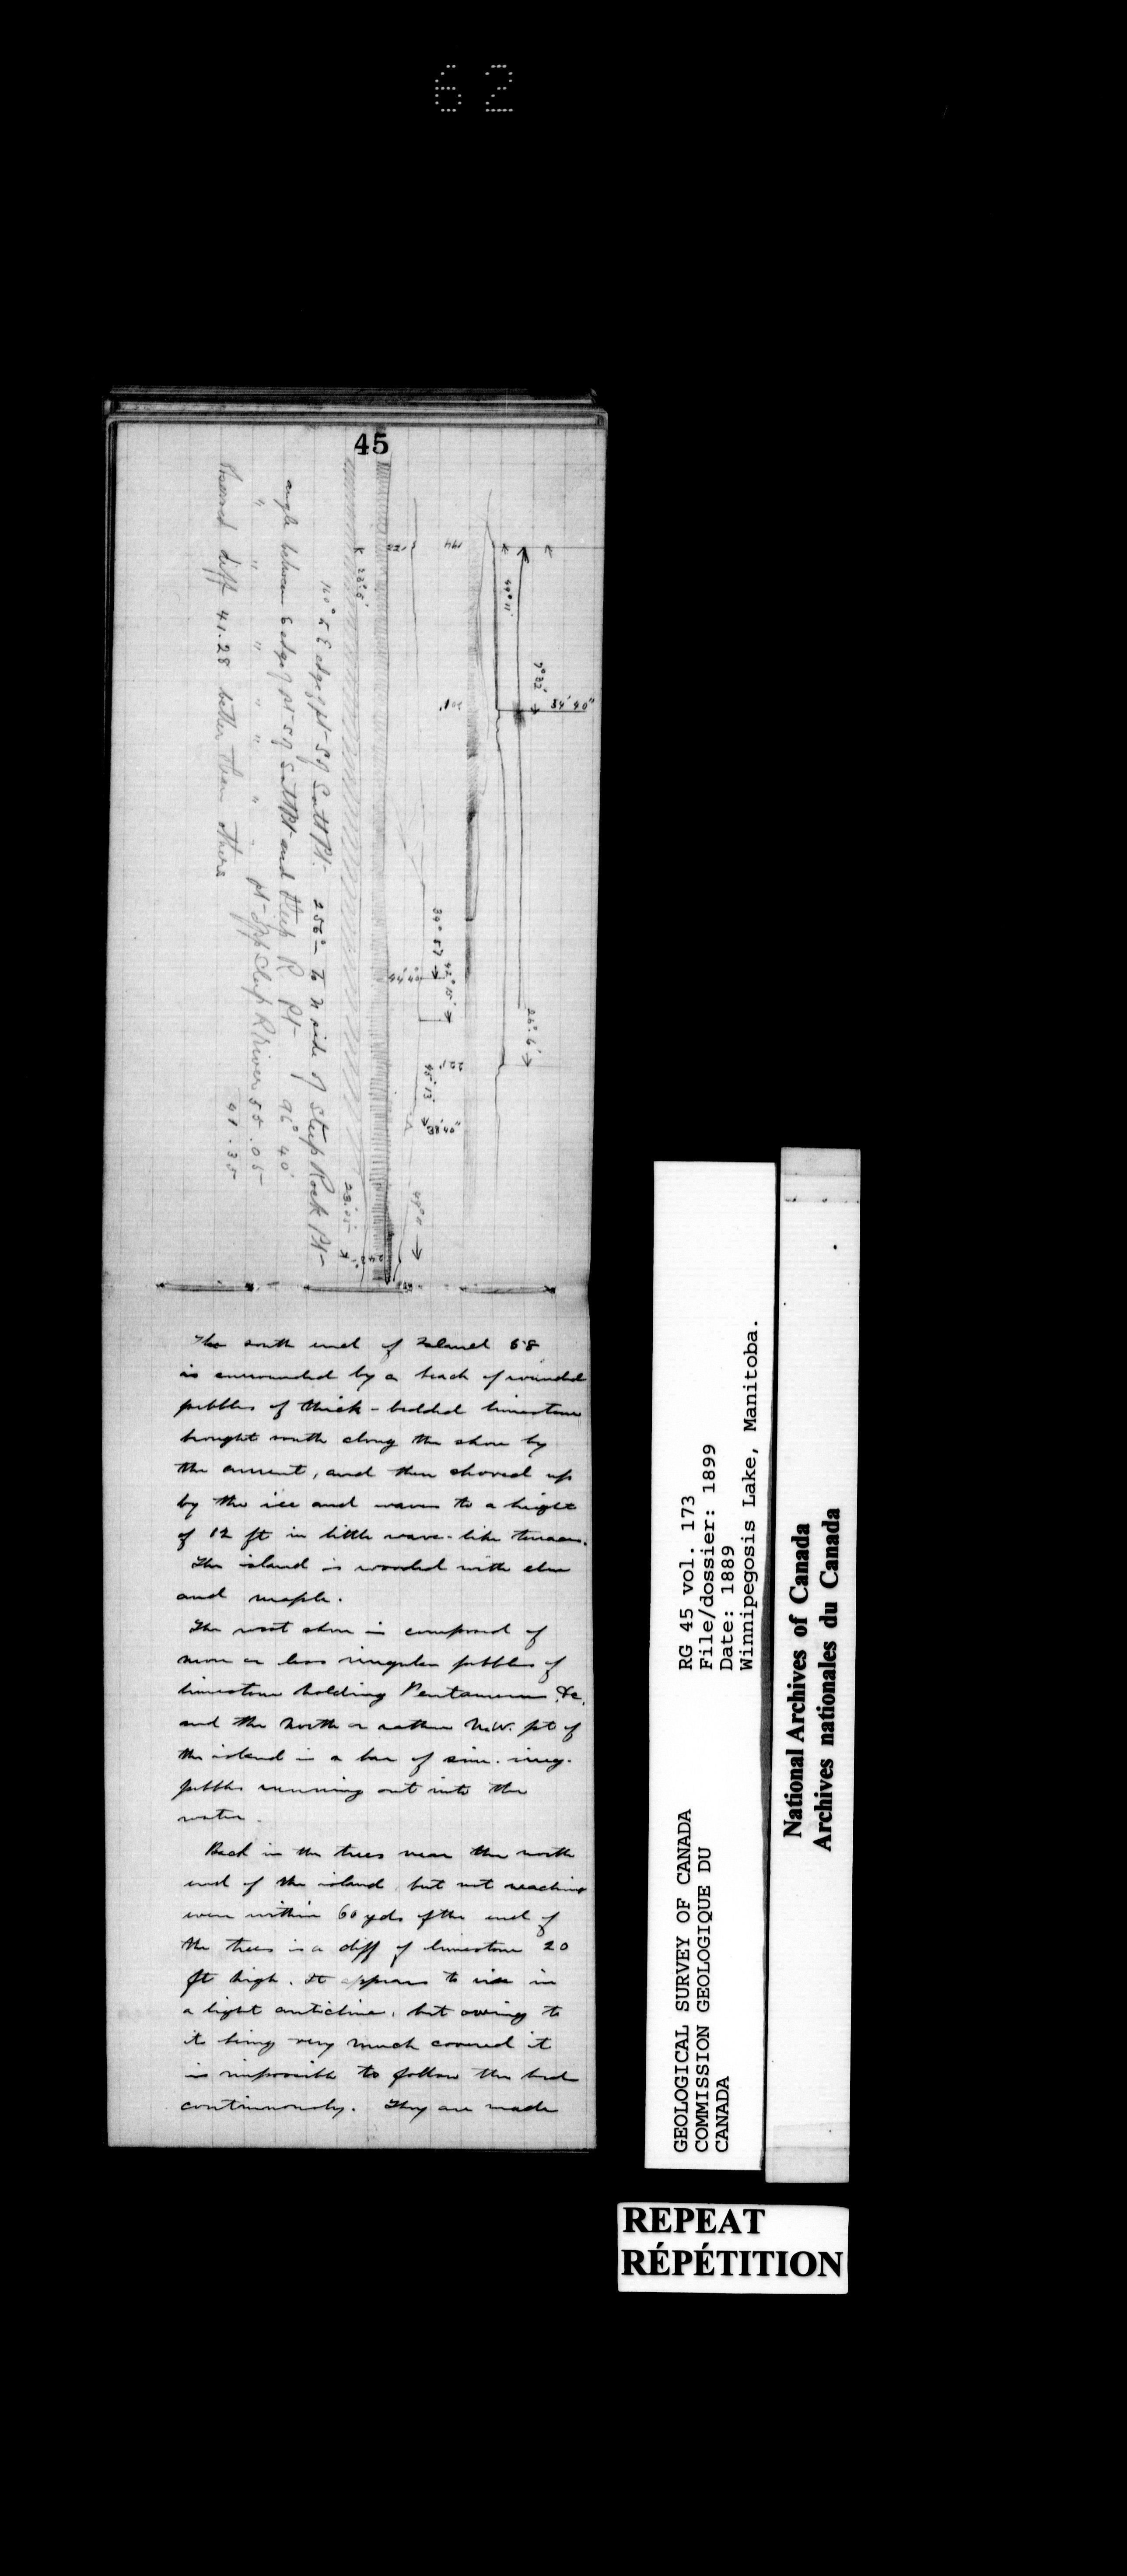 62
45
23°.5'
194
49° 11'
7° 32'
34' 40"
201
39° 57
42° 15'
44' 40"
26°.6'
221
45° 13
38' 40"
49° 11
23.05
160° to E edge of pt- S of Salt Pt- 256°- to N side of Steep Rock Pt-
angle between E edge of pt- S of Salt Pt- and Steep R Pt- 96° 40'
" " " " " " pt- opp Steep R River 55.05
41.35
diff 41.28 better than there
The south end of Island 68
is surrounded by a beach of rounded
pebbles of thick-bedded limestone
brought south along the shore by
the current, and then shoved up
by the ice and waves to a height
of 12 ft in little wave-like terraces.
The island is wooded with elm
and maple.
The west shore is composed of
more or less irregular pebbles of
limestone holding Pentamerus &c,
and the north or rather N.W. pt of
the island is a bar of sim. irreg.
pebbles running out into the
water.
Back in the trees near the north
end of the island, but not reaching
even within 60 yds of the end of
the trees is a cliff of limestone 20
ft high. It appears to rise in
a light anticline, but owing to
its being very much covered it
is impossible to follow the bed
continuously. They are made
GEOLOGICAL SURVEY OF CANADA
COMMISSION GEOLOGIQUE DU
CANADA
RG 45 vol. 173
File/dossier: 1899
Date: 1889
Winnipegosis Lake, Manitoba.
National Archives of Canada
Archives nationales du Canada
REPEAT
RÉPÉTITION